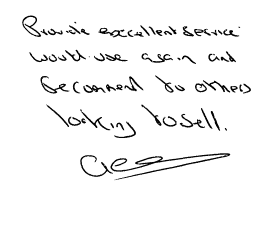 Provide excellent service
would use again and
recommend to others
looking to sell.